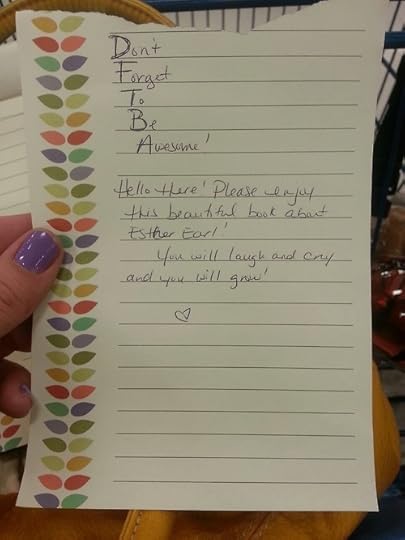 Don't
Forget
To
Be
Awesome!
Hello there! Please enjoy
this beautiful book about
Esther Earl!
You will laugh and cry
and you will grow!